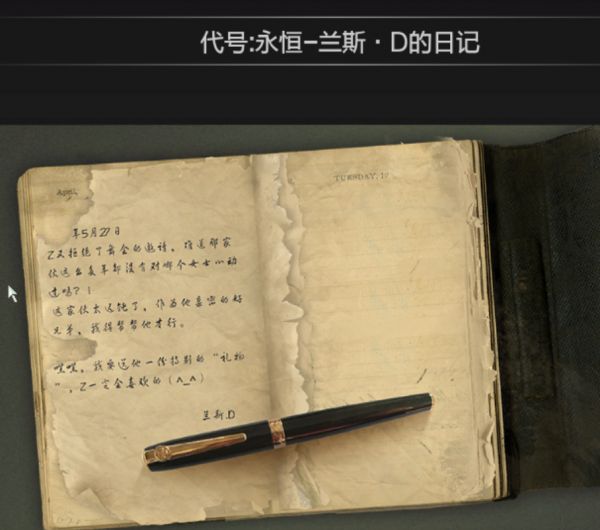 代号:永恒-兰斯·D的日记
TUESDAY, 19
年5月27日
Z又拒绝了舞会的邀请。难道那家
伙这么多年都没有对哪个女士心动
过吗？！
这家伙太迟钝了，作为他亲密的好
兄弟，我得帮帮他才行。
嘿嘿，我要送他一份特别的“礼物
”，Z一定会喜欢的（^_^）
兰斯.D